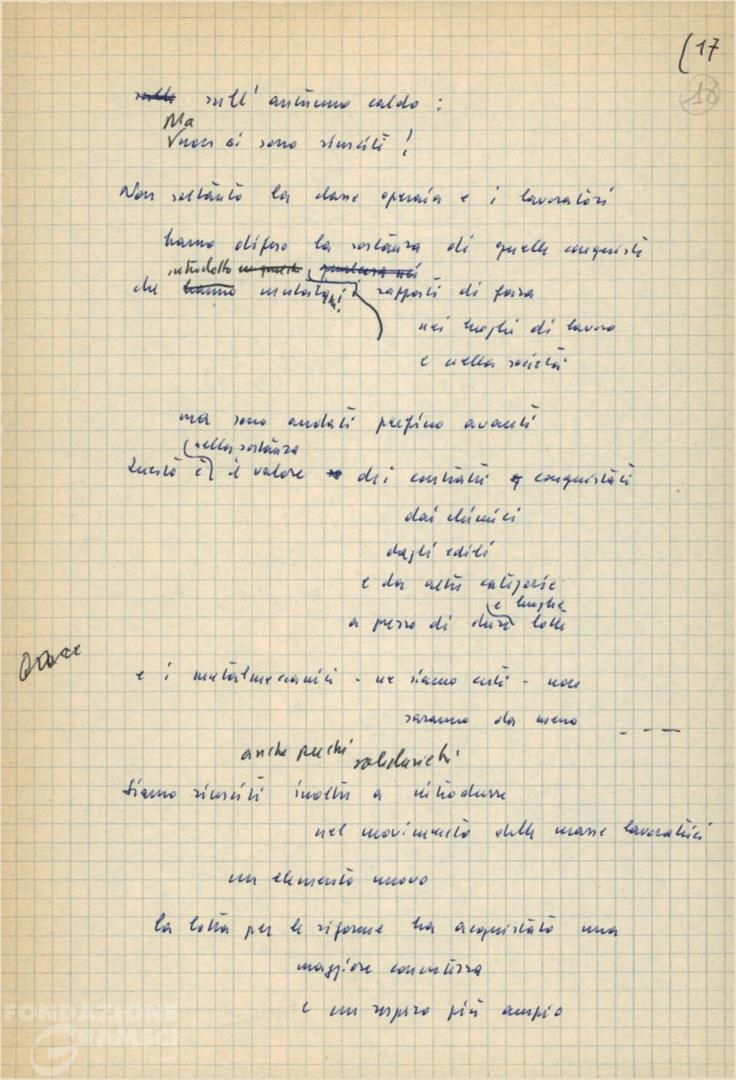 (17
18
sulla sull' autunno caldo:
Ma
non ci sono riusciti!
Non soltanto la classe operaia e i lavoratori
hanno difeso la sostanza di quelle conquiste
introdotto
che hanno mutato i rapporti di forza
nei luoghi di lavoro
e nella società
ma sono andati perfino avanti
nella sostanza
Questo è il valore dei contratti conquistati
dai chimici
dagli edili
e da altre categorie
e lunghe
a prezzo di dure lotte
e i metalmeccanici - ne siamo certi - non
saranno da meno - - -
anche perché solidarietà
Siamo riusciti inoltre a introdurre
nel movimento delle masse lavoratrici
un elemento nuovo
la lotta per le riforme ha acquistato una
maggiore concretezza
e un respiro più ampio
FONDAZIONE
GRAMSCI